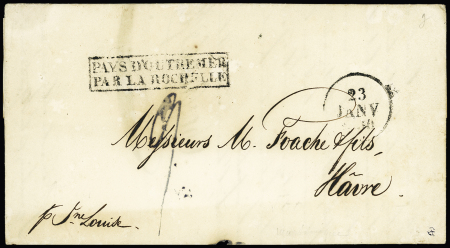 PAYS D'OUTREMER
PAR LA ROCHELLE
23
JANV
Messieurs M. Foache & fils,
Hâvre
p. Jne Louise